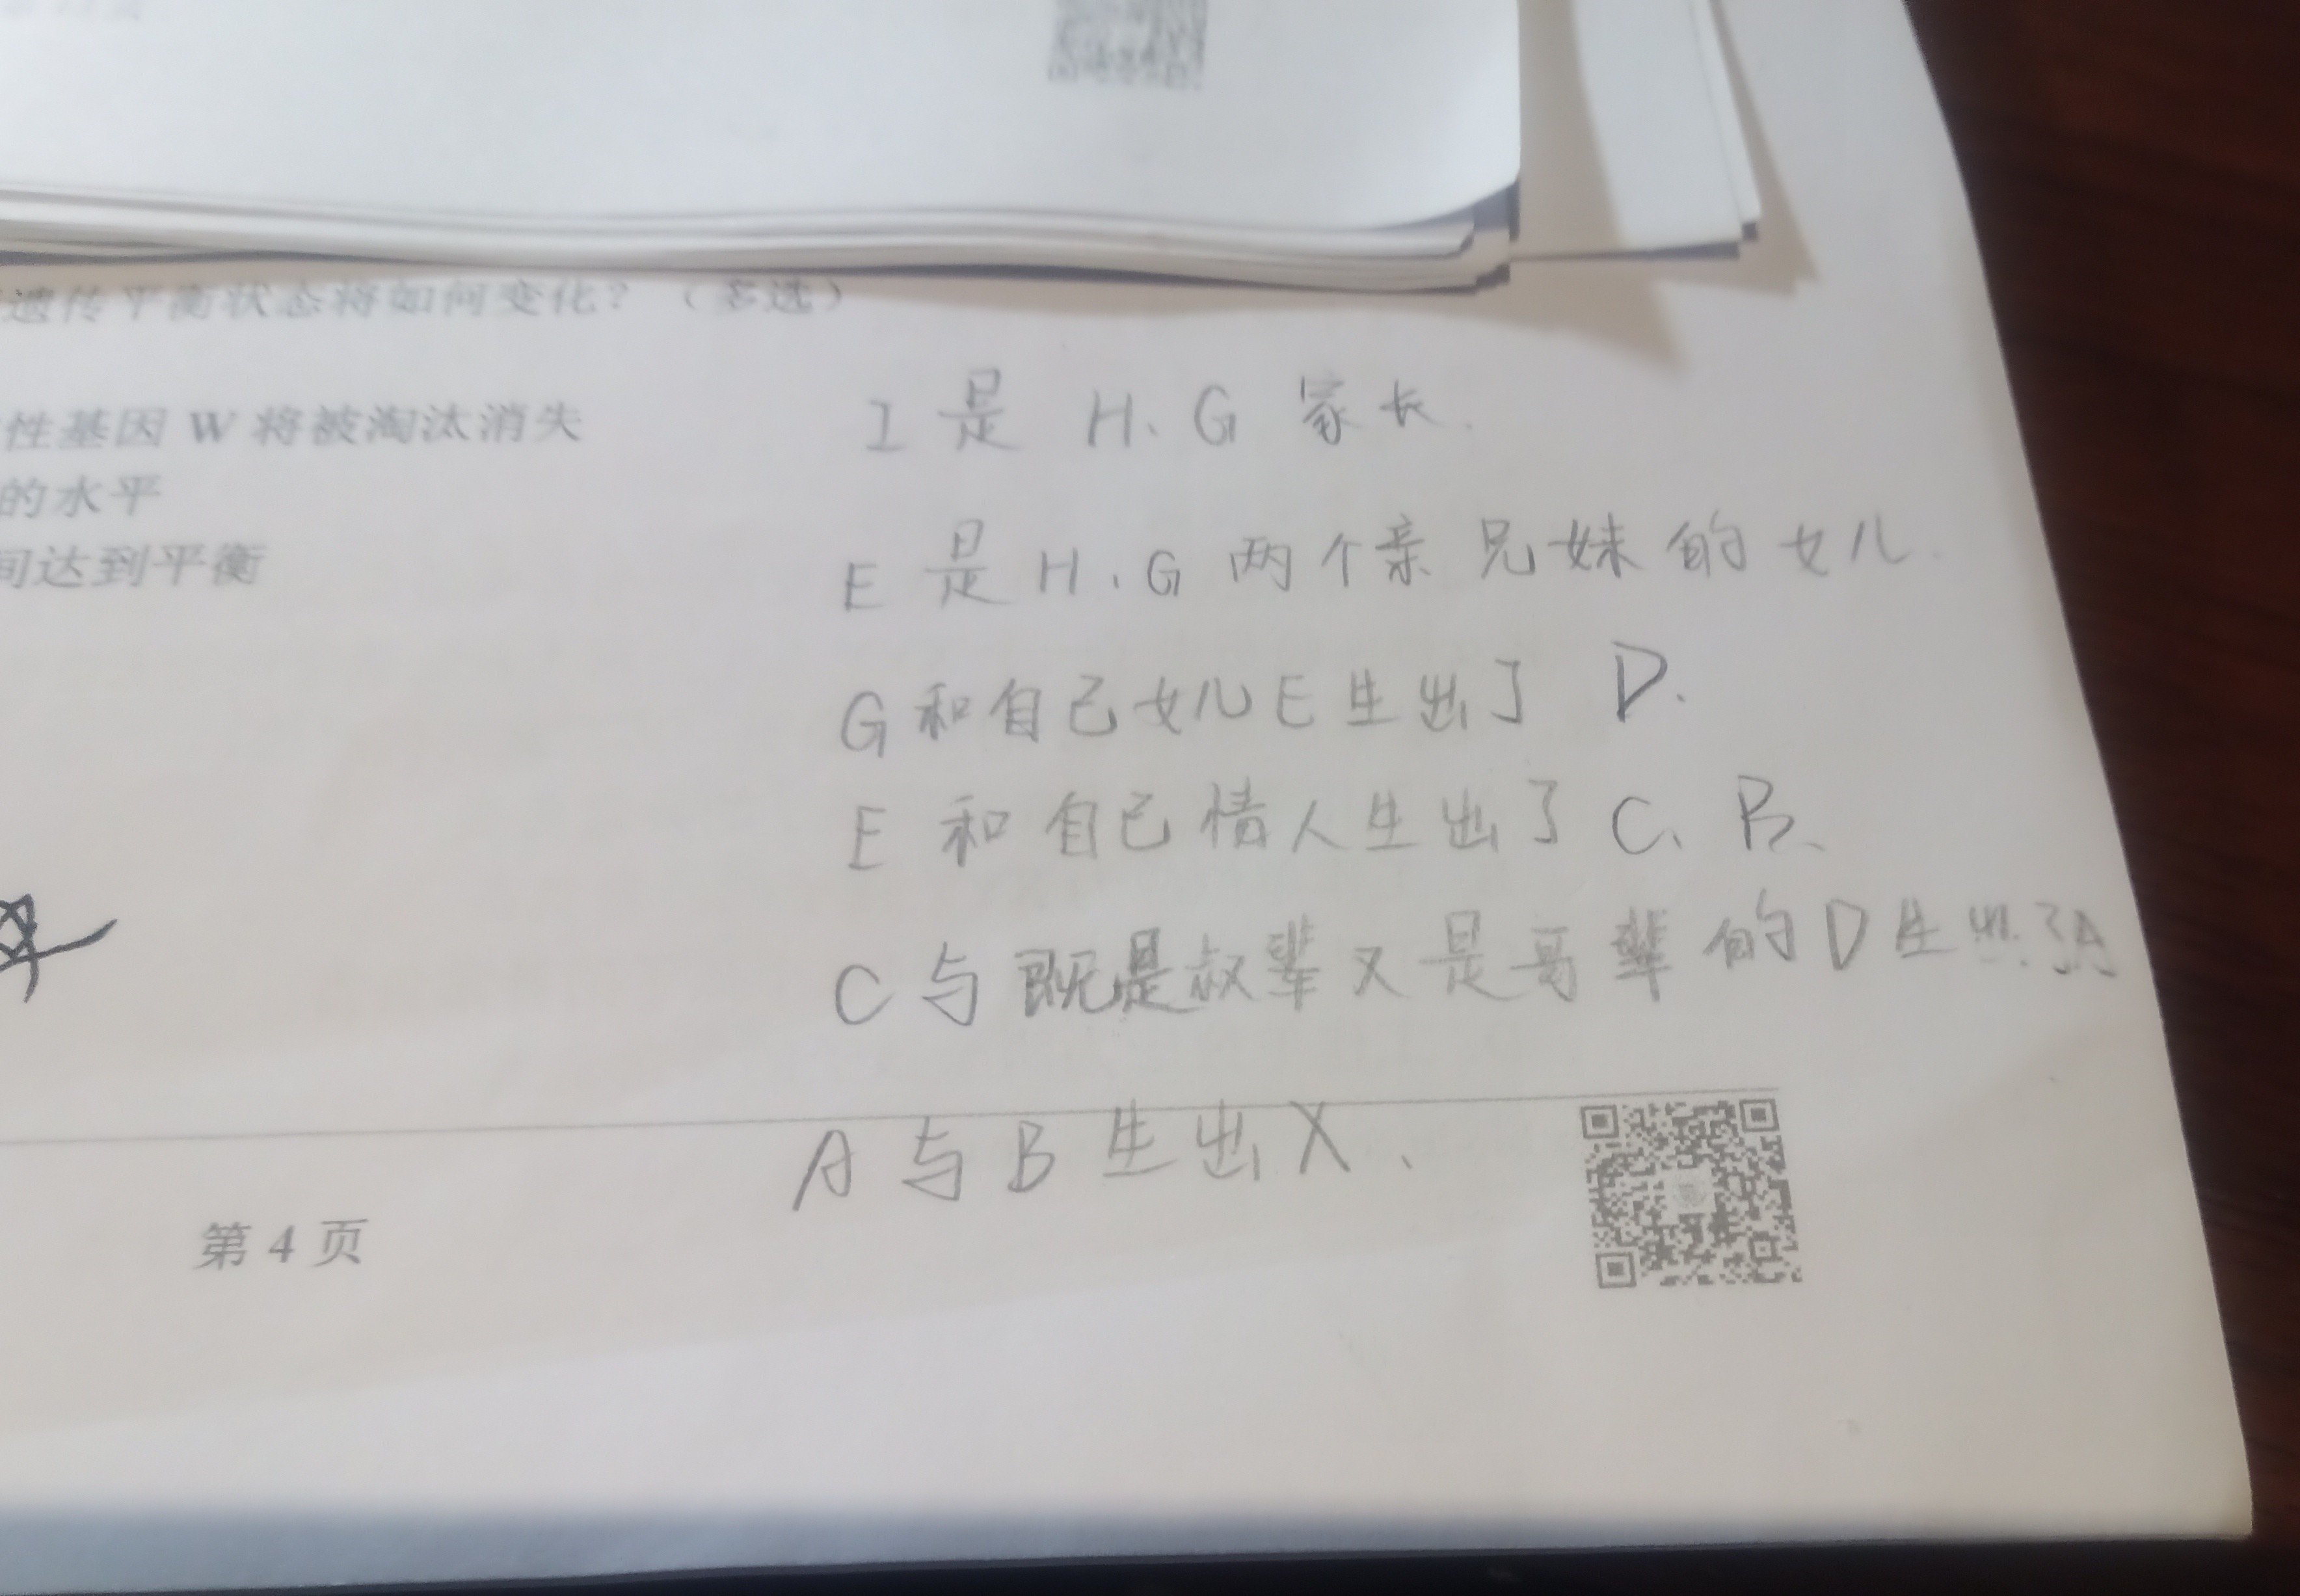 遗传平衡状态将如何变化？（多选）
性基因 W 将被淘汰消失
的水平
间达到平衡
I 是 H、G 家长.
E 是 H、G 两个亲兄妹的女儿.
G和自己女儿E生出了 D.
E 和自己情人生出了 C、B、
C与既是叔辈又是哥辈的D生出了A
A 与 B 生出 X、
第 4 页